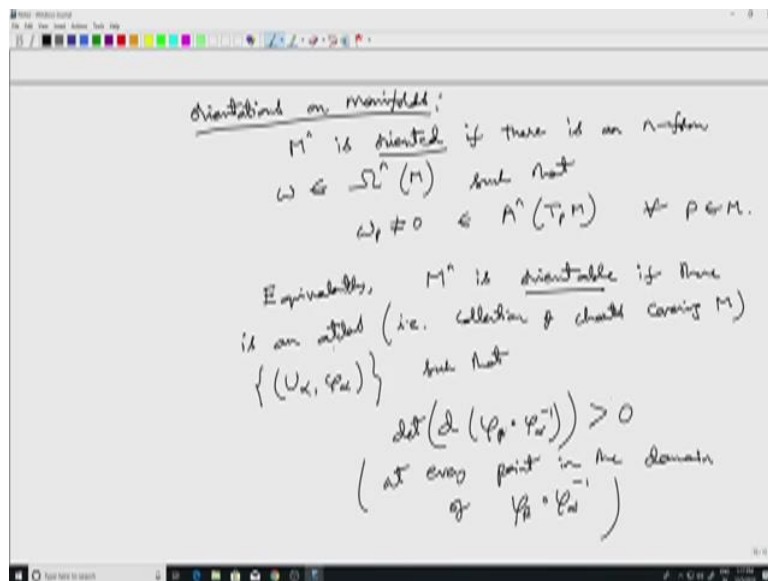 orientations on manifolds:
Mⁿ is oriented if there is an n-form
ω ∈ Ωⁿ(M) such that
ω_p ≠ 0 ∈ Aⁿ(T_p M) ∀ p ∈ M.
Equivalently, Mⁿ is orientable if there
is an atlas (i.e. collection of charts covering M)
{(U_α, φ_α)} such that
det(d(φ_β ∘ φ_α⁻¹)) > 0
(at every point in the domain
of φ_β ∘ φ_α⁻¹)
Type here to search